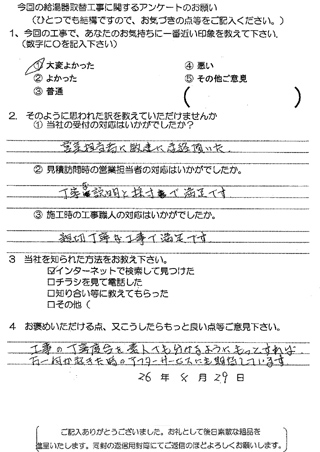 今回の給湯器取替工事に関するアンケートのお願い
（ひとつでも結構ですので、お気づきの点等をご記入ください。）
1、今回の工事で、あなたのお気持ちに一番近い印象を教えて下さい。
（数字に○を記入下さい）
① 大変よかった ④ 悪い
② よかった ⑤ その他ご意見
③ 普通 ( )
2. そのように思われた訳を教えていただけませんか
① 当社の受付の対応はいかがでしたか？
営業担当者に敏速に連絡頂いた
② 見積訪問時の営業担当者の対応はいかがでしたか。
丁寧な説明と で満足です
③ 施工時の工事職人の対応はいかがでしたか。
親切丁寧な工事で満足です。
3 当社を知られた方法をお教え下さい。
☑インターネットで検索して見つけた
□チラシを見て電話した
□知り合い等に教えてもらった
□その他（
4 お褒めいただける点、又こうしたらもっと良い点等ご意見下さい。
工事の丁寧度合を素人でも分かるようにもっとすれば
万一何か起きた時のアフターサービスにも期待しています。
26 年 月 29 日
ご記入ありがとうございました。お礼として後日素敵な粗品を
進呈いたします。同封の返信用封筒にてご返信のほどよろしくお願いします。